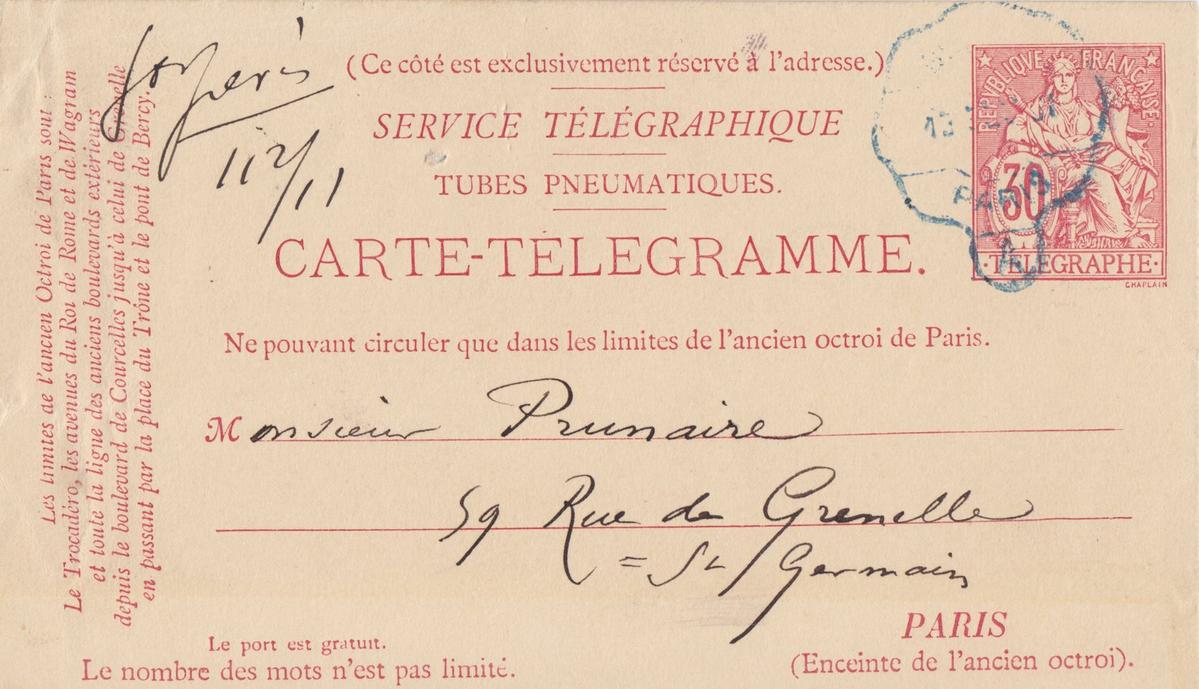 (Ce côté est exclusivement réservé à l'adresse.)
SERVICE TÉLÉGRAPHIQUE
TUBES PNEUMATIQUES.
CARTE-TÉLÉGRAMME.
Ne pouvant circuler que dans les limites de l'ancien octroi de Paris.
Monsieur Prunaire
59 Rue de Grenelle
= St Germain
PARIS
(Enceinte de l'ancien octroi).
Le port est gratuit.
Le nombre des mots n'est pas limité.
Les limites de l'ancien Octroi de Paris sont :
Le Trocadéro, les avenues du Roi de Rome et de Wagram
et toute la ligne des anciens boulevards extérieurs
depuis le boulevard de Courcelles jusqu'à celui de Grenelle
en passant par la place du Trône et le pont de Bercy.
112/11
REPUBLIQUE FRANÇAISE
30
TÉLÉGRAPHE
CHAPLAIN
PARIS